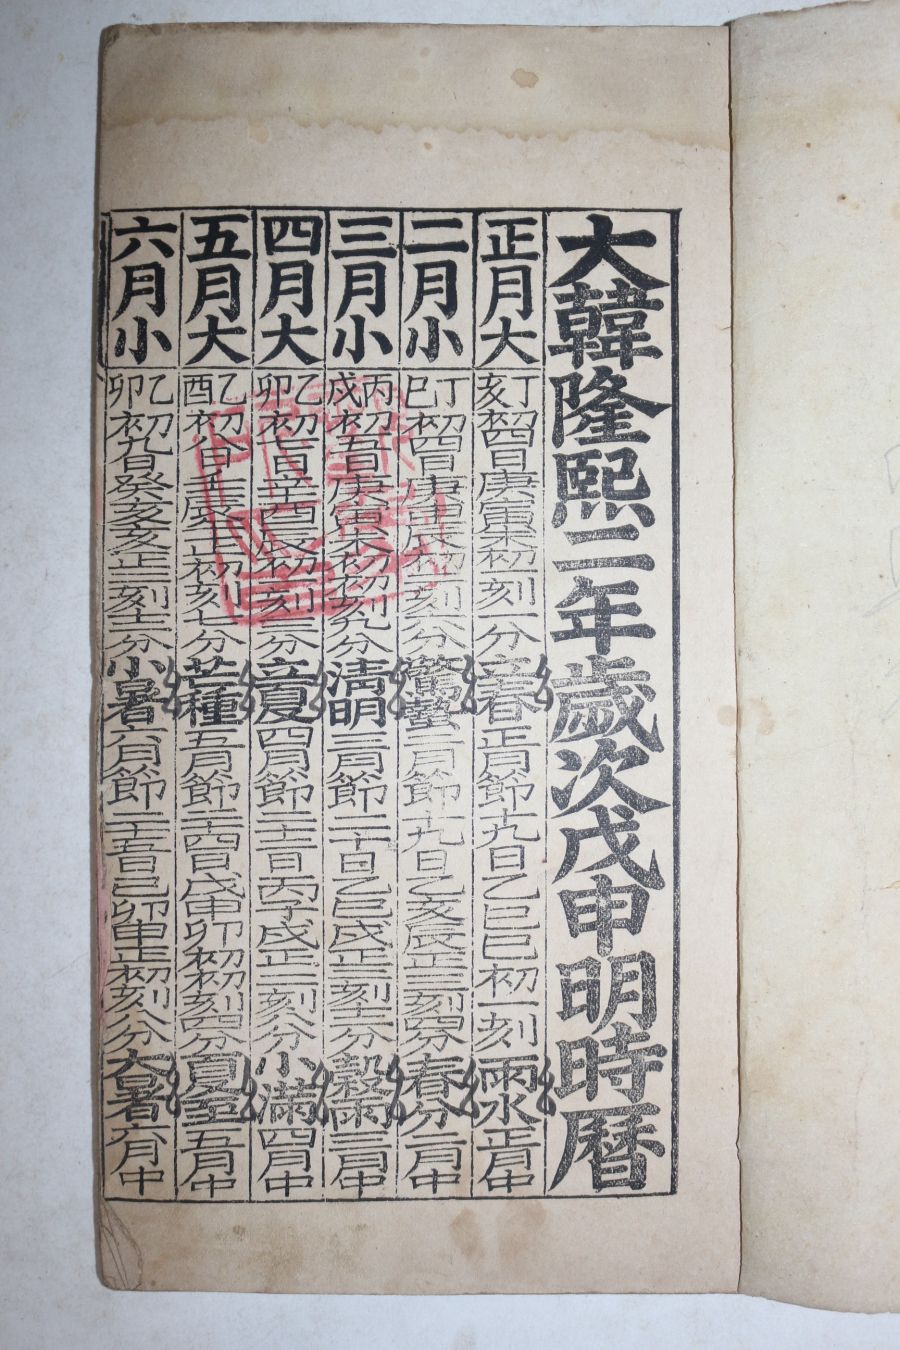 大韓隆熙二年歲次戊申明時曆
正月大 丁亥 初四日庚寅未初一刻一分立春正月節十九日乙巳巳初一刻雨水正月中
二月小 丁巳 初四日庚申辰初一刻六分驚蟄二月節十九日乙亥辰正三刻四分春分二月中
三月小 丙戌 初五日庚寅未初初刻九分淸明三月節二十日乙巳戌正三刻十二分穀雨三月中
四月大 乙卯 初七日辛酉辰初一刻三分立夏四月節二十二日丙子戌正二刻八分小滿四月中
五月大 乙酉 初八日壬辰午正初刻七分芒種五月節二十四日戊申卯初初刻四分夏至五月中
六月小 乙卯 初九日癸亥亥正二刻十二分小暑六月節二十五日己卯申正初刻八分大暑六月中